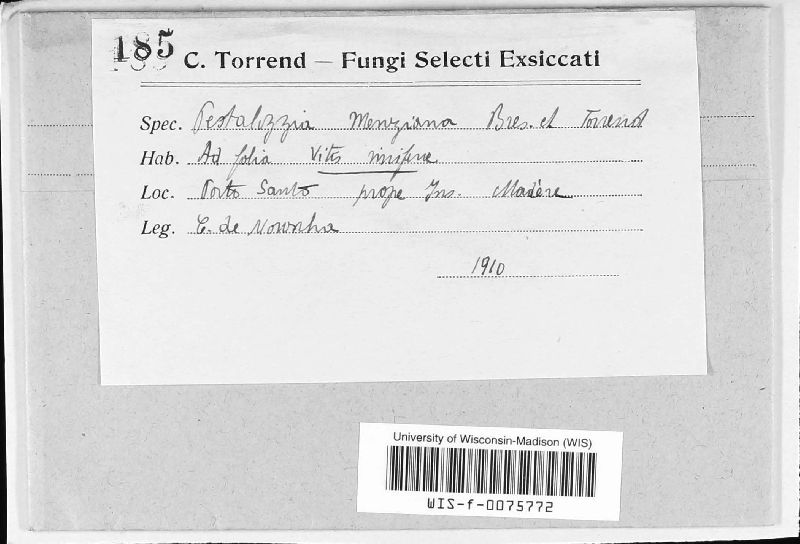 185 C. Torrend — Fungi Selecti Exsiccati
Spec. Pestalozzia Meneziana Bres. et Torrend
Hab. Ad folia Vitis viniferae
Loc. Porto Santo prope Ins. Madère
Leg. C. de Noronha
1910
University of Wisconsin-Madison (WIS)
WIS-f-0075772